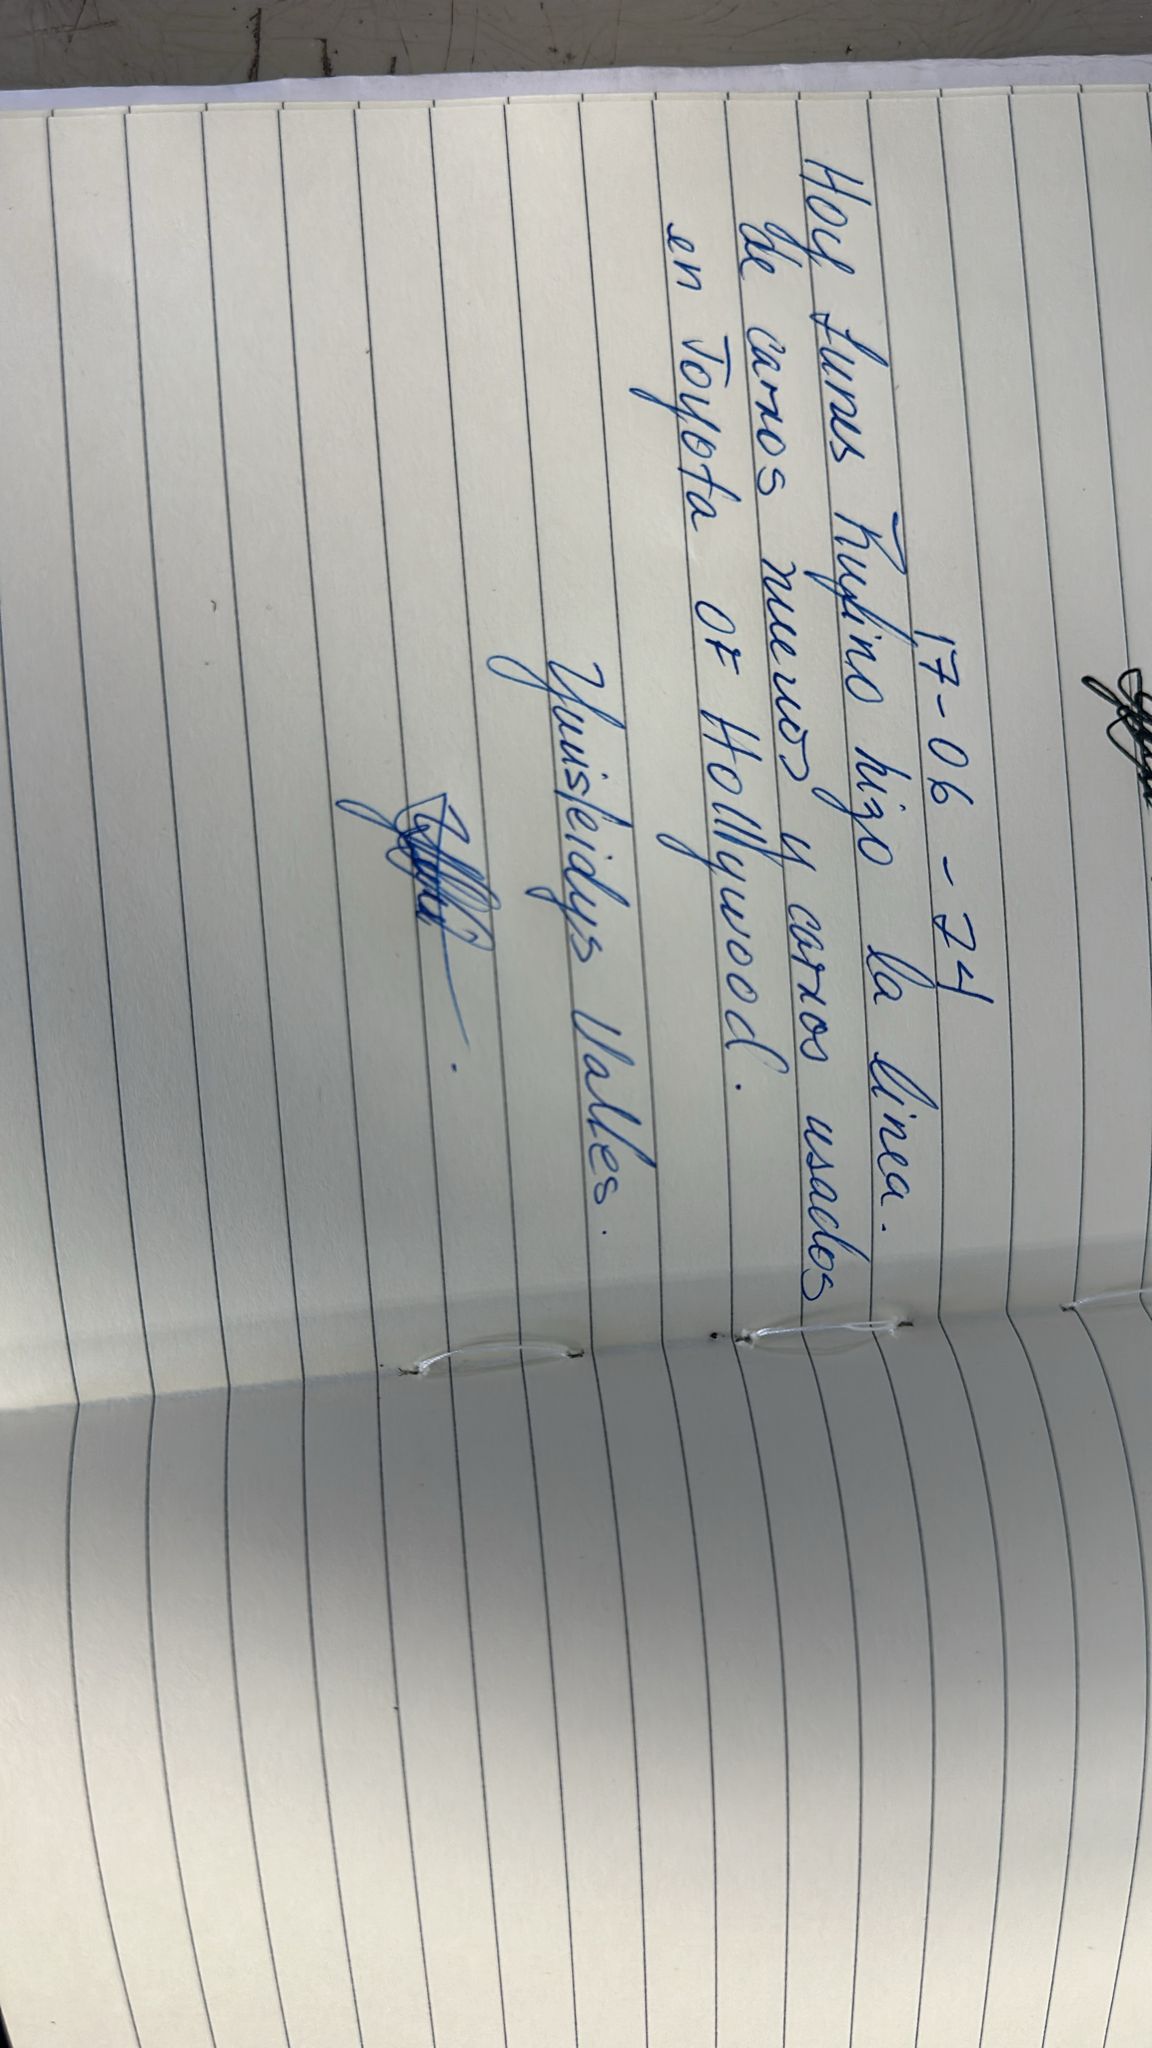 17-06-24
Hoy Lunes Rufino hizo la linea.
de carros nuevos y carros usados
en Toyota OF Hollywood.
Yunisleidys Valles.